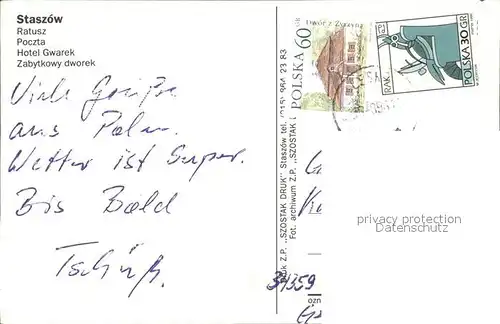 Staszów
Ratusz
Poczta
Hotel Gwarek
Zabytkowy dworek
Viele Grüße
aus Polen.
Wetter ist Super.
Bis Bald
Tschüß.
Druk Z.P. „SZOSTAK DRUK” Staszów tel. (015) 864 23 83
Fot. archiwum Z.P. „SZOSTAK
POLSKA 60 GR
Dwór z Żyrzyna
POLSKA 30 GR
RAK
34359
privacy protection
Datenschutz